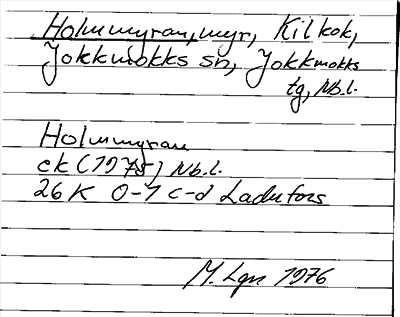 Holmmyran, myr, Kilkok,
Jokkmokks sn, Jokkmokks
tg, Nb.l.
Holmmyran
ek (1975) Nb.l.
26 K 0-1 c-d Ladufors
M. Lgn 1976